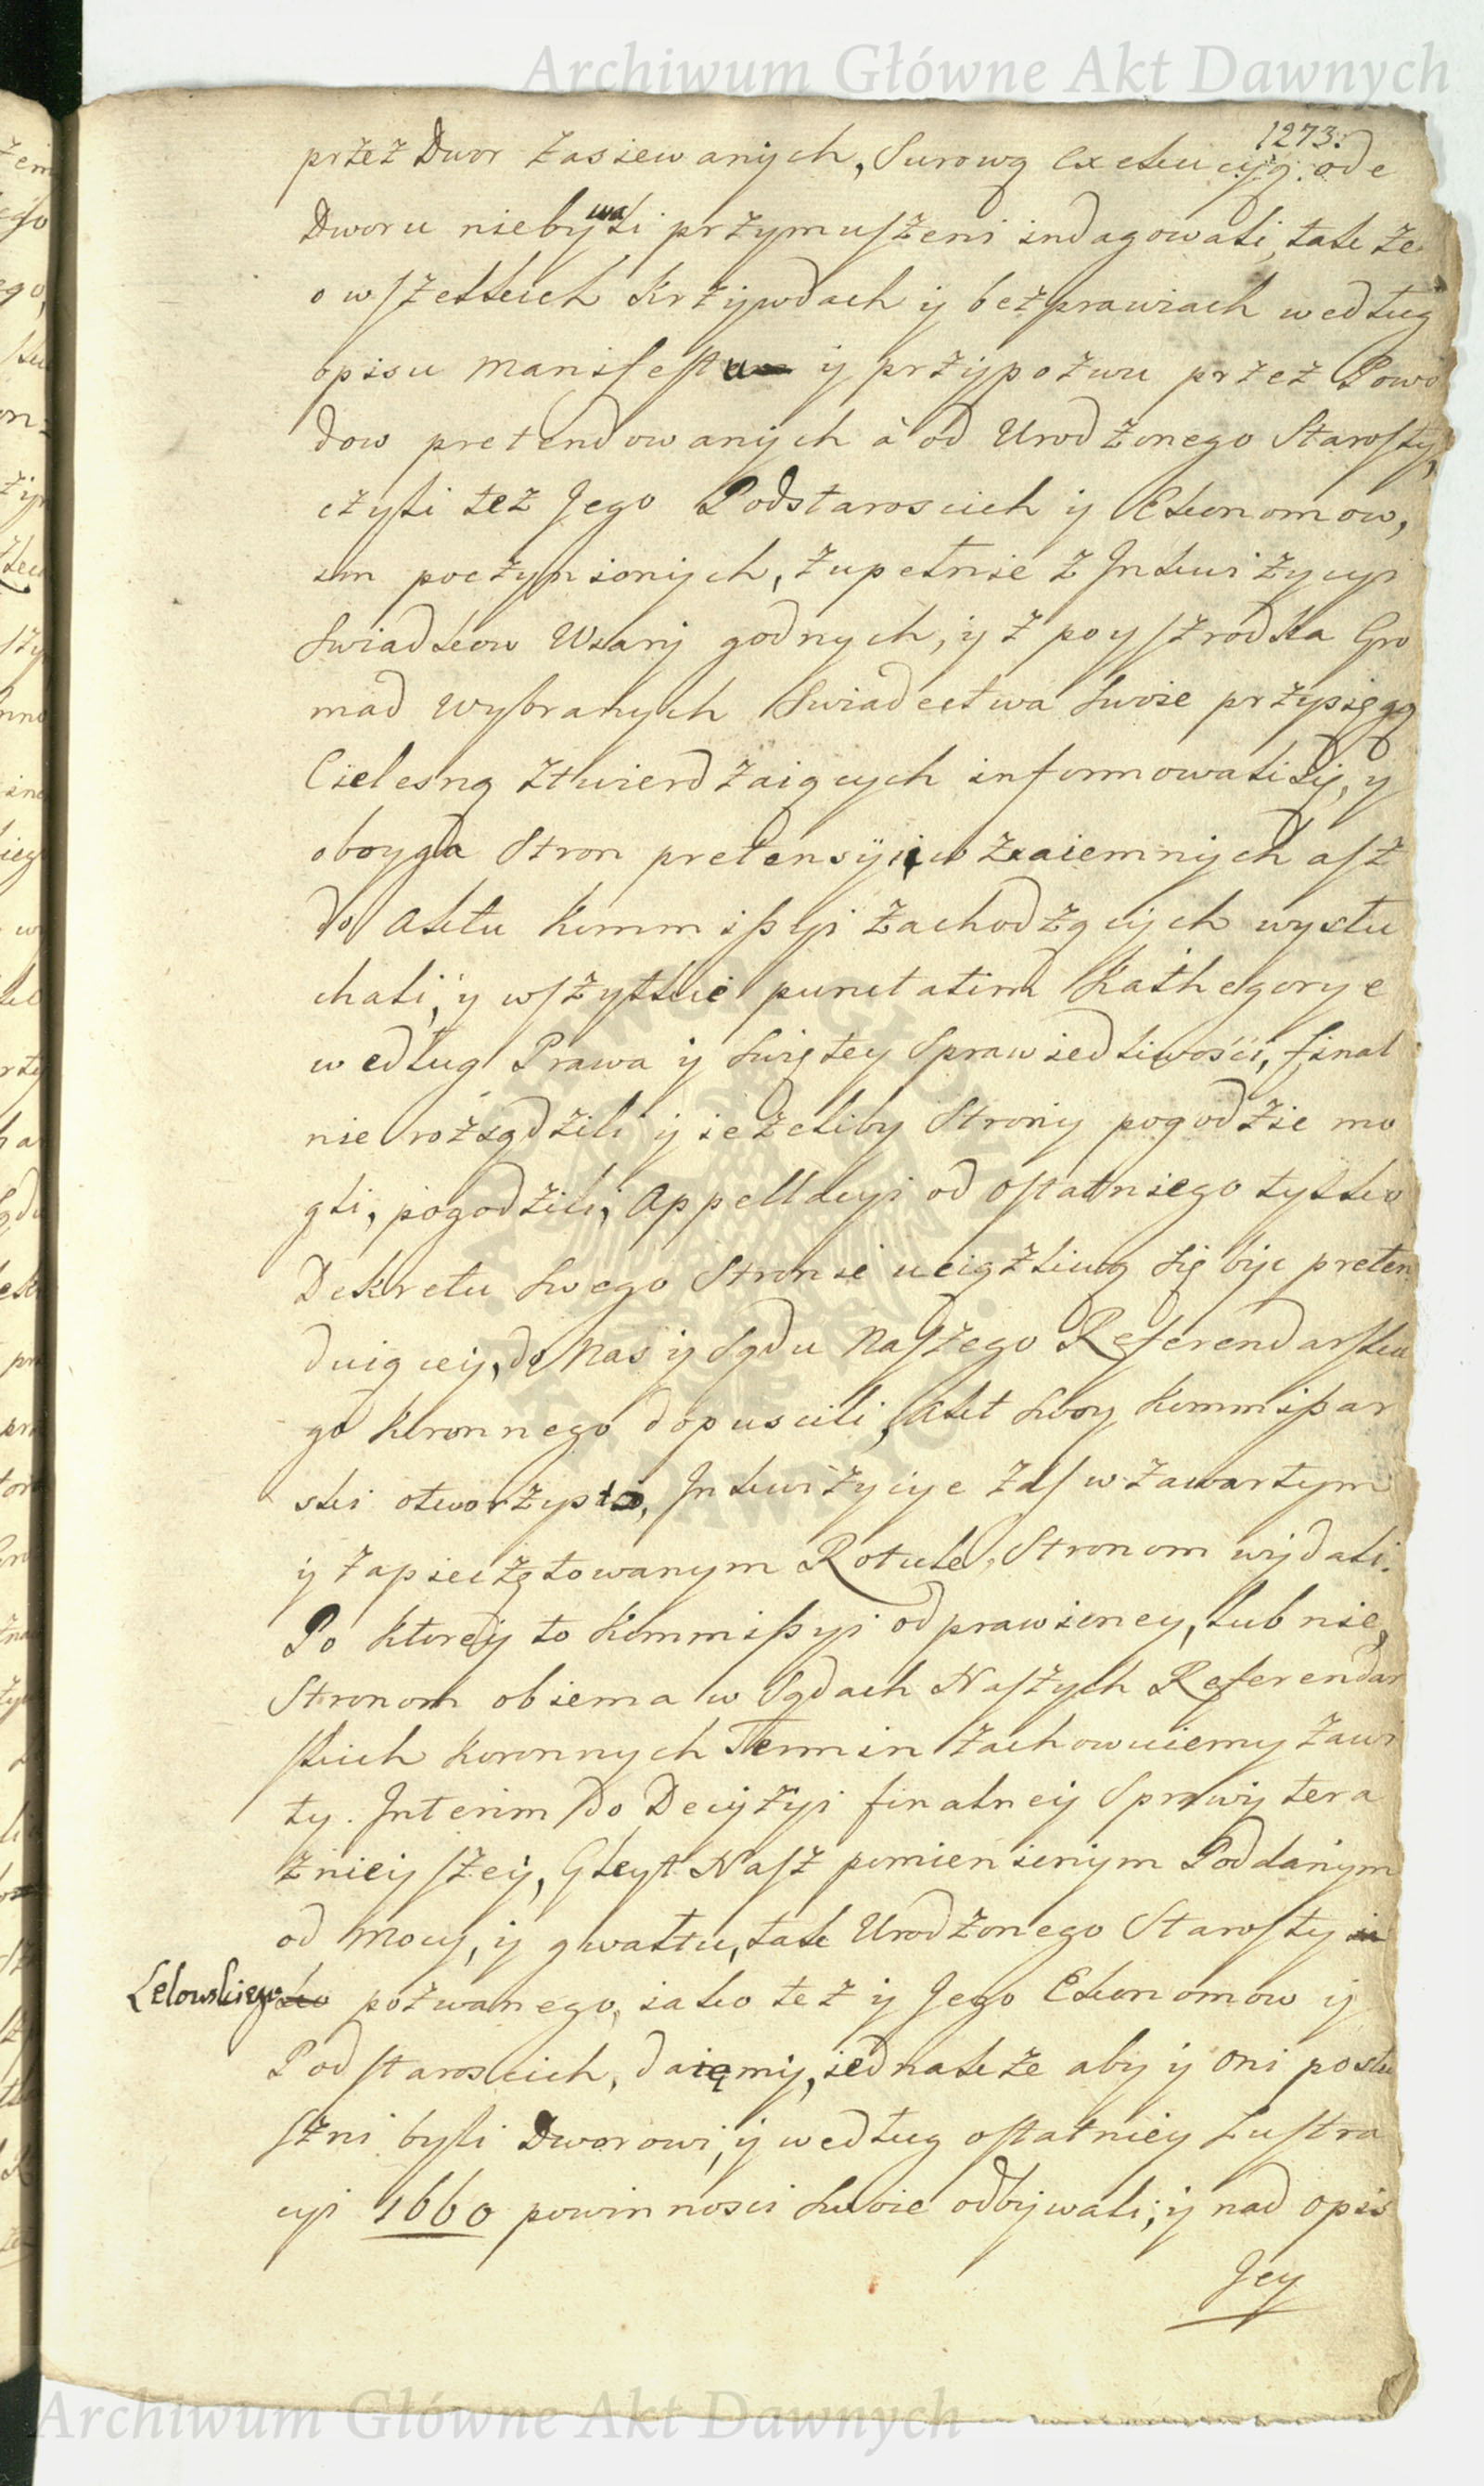 Archiwum Główne Akt Dawnych
1273.
przez Dwor zasiewanych, Surową Exekucyą ode
Dworu niebywali przymuszeni indagowali, tak ze
o wszelkich Krzywdach y bezprawiach według
opisu Manifestu y przypozwu przez Powo
dow pretendowanych à od Urodzonego Starosty,
czyli tez Jego Podstaroscich y Ekonomow,
im poczynionych, zupełnie z Inkwizycyi
Swiadkow Wiary godnych, y z poyszrodka Gro
mad wybranych Swiadectwa swoie przysięgą
Cielesną ztwierdzaiących informowali się, y
oboyga Stron pretensyi wzaiemnych asz
do Aktu Kommissyi zachodzących wysłu
chali, y wszytkie punctatim Kathegorye
według Prawa y Swiętey Sprawiedliwości, final
nie rozsądzili y ieżeliby Strony pogodzie mo
gli, pogodzili, Appellacyi od ostatniego tylko
Dekretu swego Stronie uciążliwą się byc preten
duiącey, do Nas y Sądu Naszego Referendarsku
go Koronnego dopuscili, Akt swoy Kommissar
ski otworzysto, Inkwizycye zas w zawartym
y zapieczętowanym Rotule, Stronom wydali.
Po ktorey to Kommissyi odprawioney, lub nie,
Stronom obiema w Sądach Naszych Referendar
skich Koronnych Termin zachowuiemy zawi
ty. Interim do Decyzyi finalney Sprawy tera
znieyszey, Gleyt Nasz pomienionym Poddanym
od Mocy, y gwałtu, tak Urodzonego Starosty
Lelowskiego pozwanego, iako też y Jego Ekonomow y
Podstaroscich, daięmy, iednakze aby y oni posłu
szni byli Dworowi, y według ostatniey Lustra
cyi 1660 powinnosci swoie odbywali; y nad opis
Jey
ARCHIWUM GŁÓWNE AKT DAWNYCH
Archiwum Główne Akt Dawnych